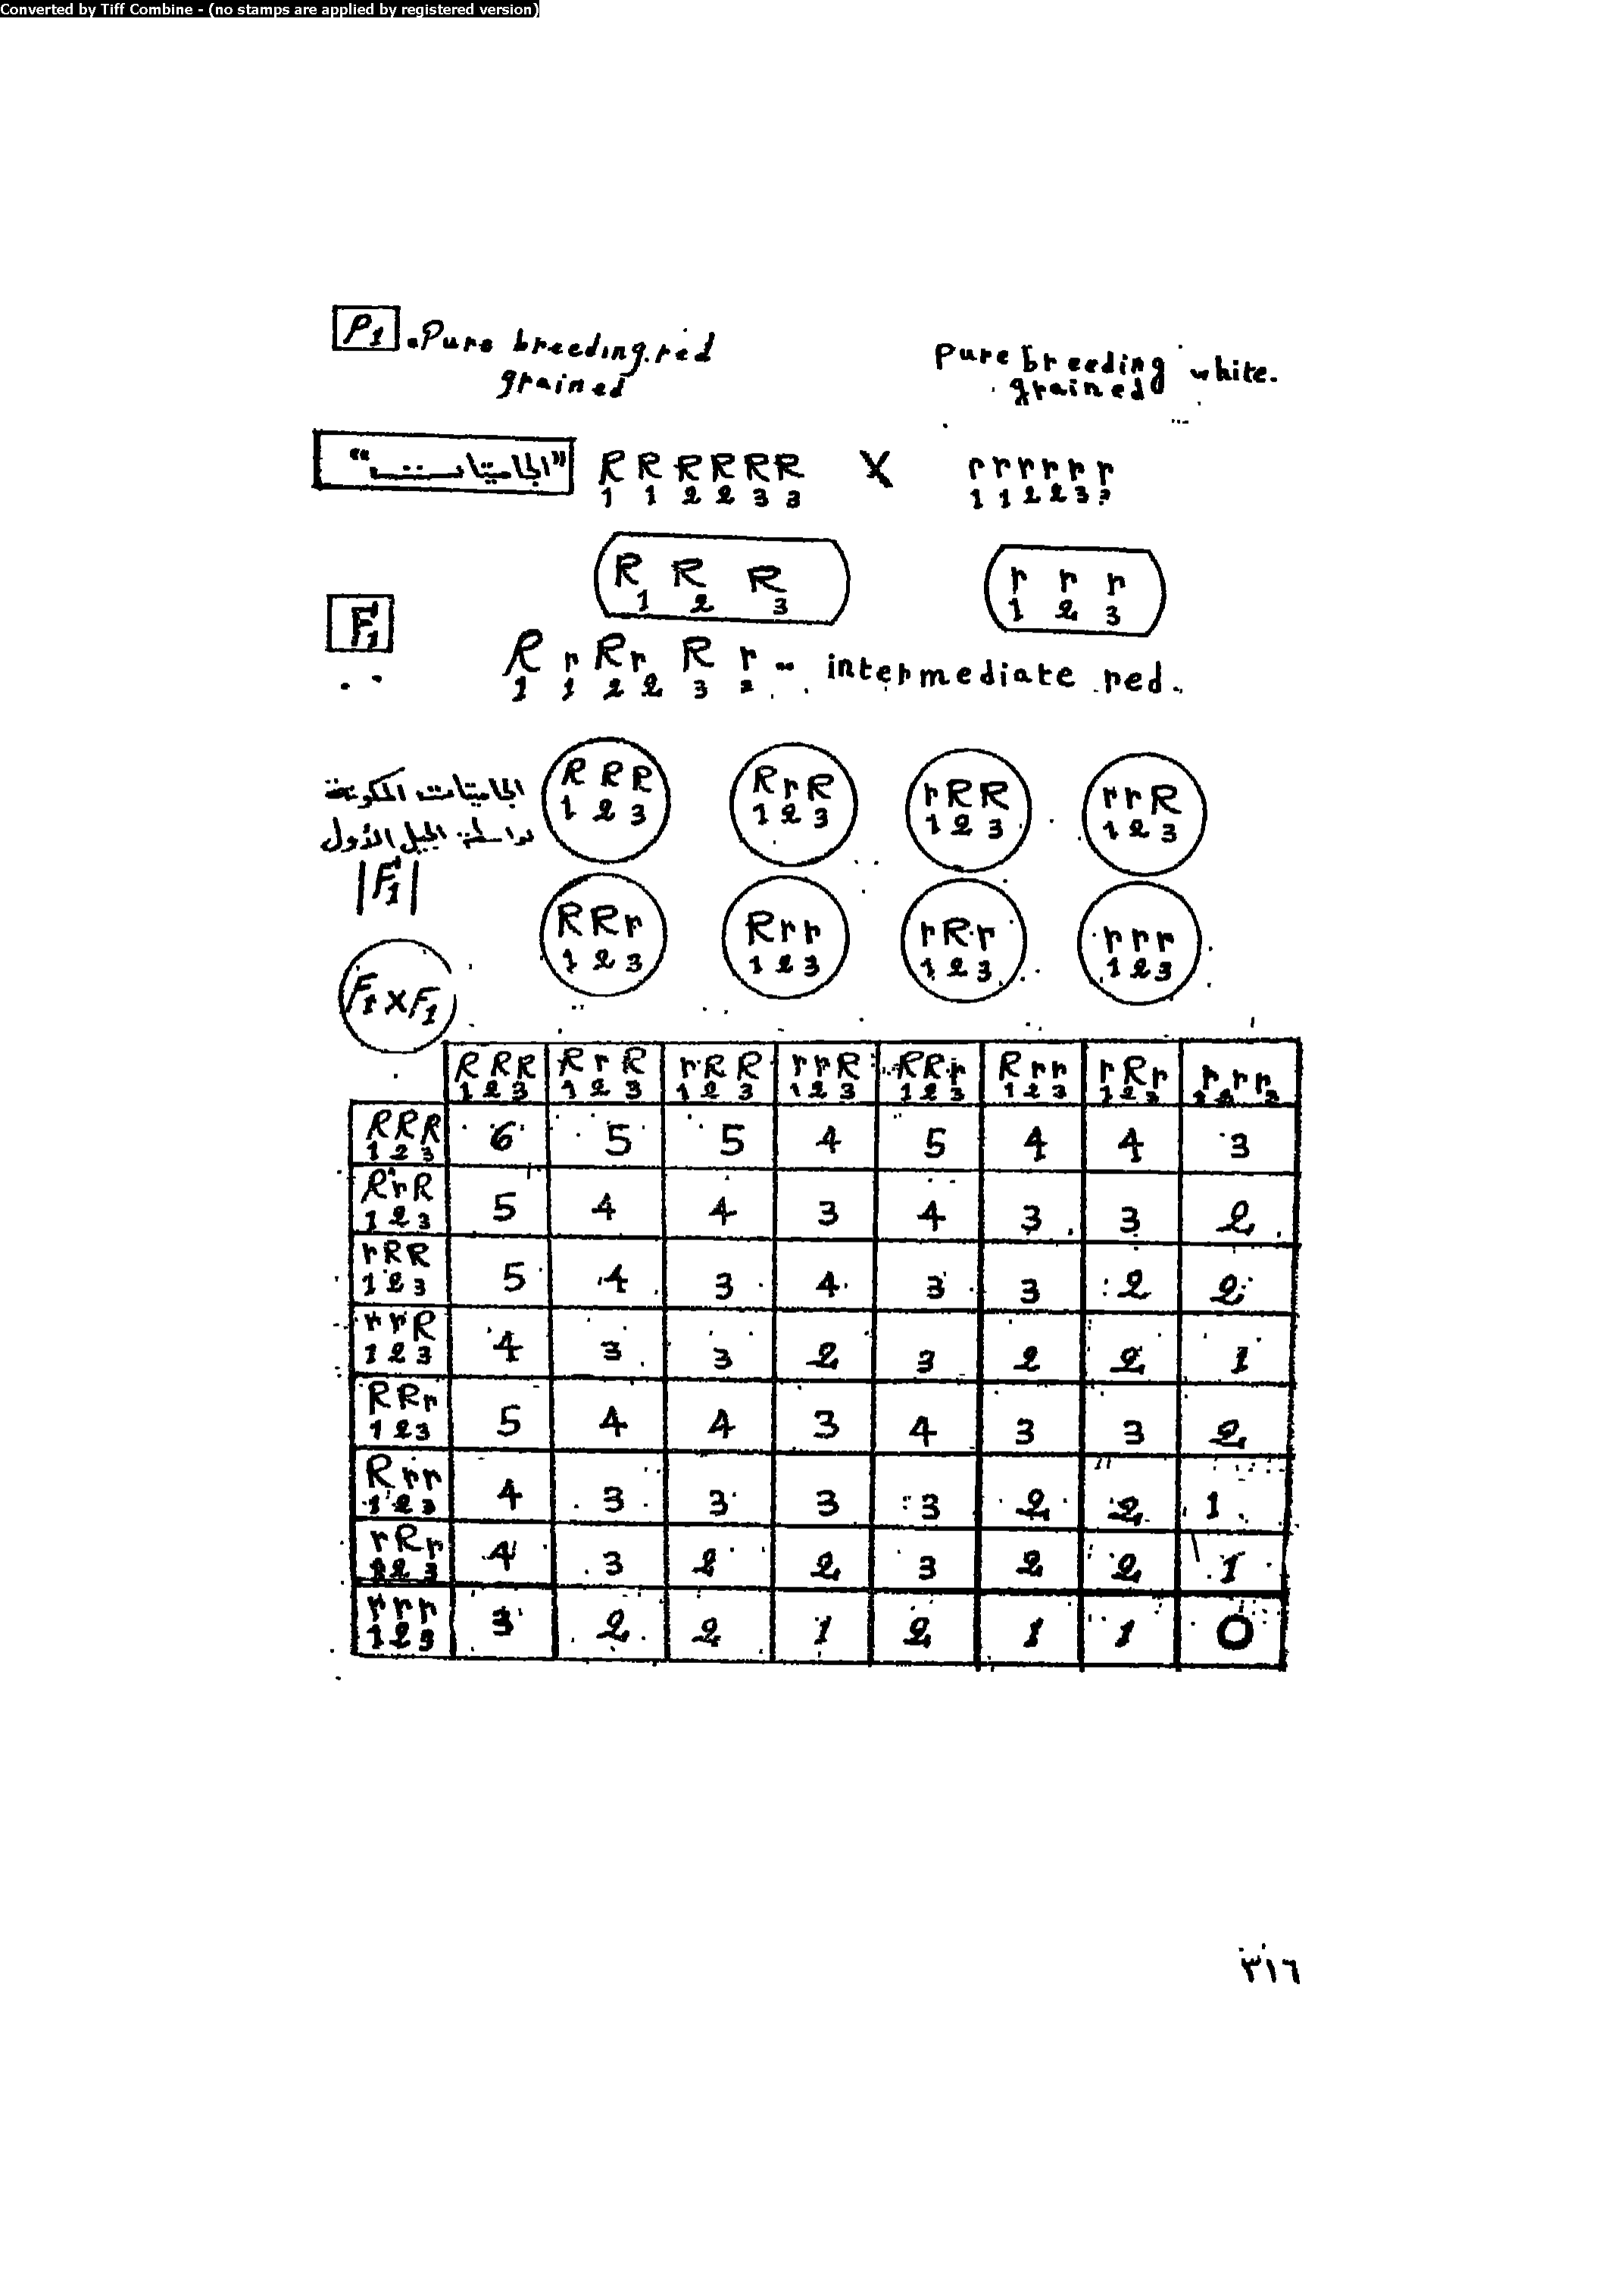 Converted by Tiff Combine - (no stamps are applied by registered version)
P1 Pure breeding red grained
pure breeding white grained
"الجاميتات" R1 R1 R2 R2 R3 R3 X r1 r1 r2 r2 r3 r3
R1 R2 R3 r1 r2 r3
F1
R1 r1 R2 r2 R3 r intermediate red.
الجاميتات المكونة
بواسطة الجيل الأول
F1
R1 R2 R3 R1 r2 R3 r1 R2 R3 r1 r2 R3
R1 R2 r3 R1 r2 r3 r1 R2 r3 r1 r2 r3
F1 X F1
R1 R2 R3 R1 r2 R3 r1 R2 R3 r1 r2 R3 R1 R2 r3 R1 r2 r3 r1 R2 r3 r1 r2 r3
R1 R2 R3 6 5 5 4 5 4 4 3
R1 r2 R3 5 4 4 3 4 3 3 2
r1 R2 R3 5 4 3 4 3 3 2 2
r1 r2 R3 4 3 3 2 3 2 2 1
R1 R2 r3 5 4 4 3 4 3 3 2
R1 r2 r3 4 3 3 3 3 2 2 1
r1 R2 r3 4 3 2 2 3 2 2 1
r1 r2 r3 3 2 2 1 2 1 1 0
٣١٦